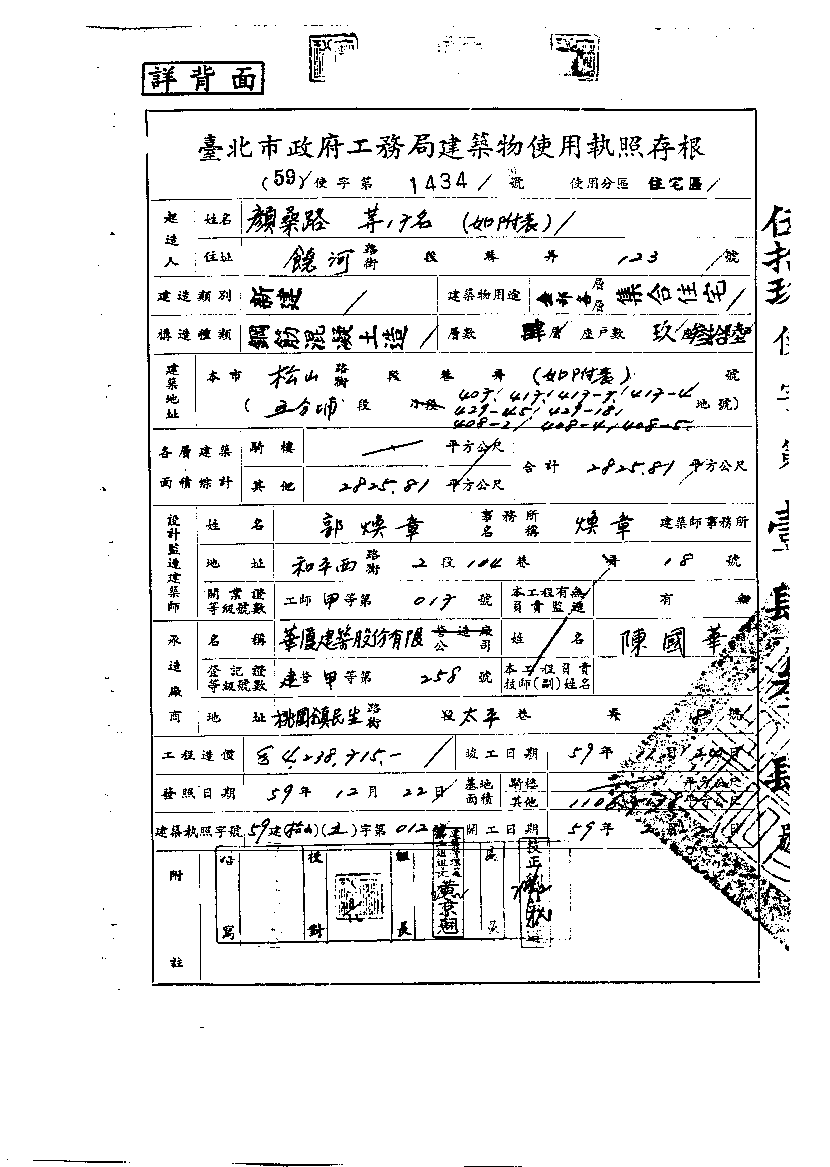 詳背面
臺北市政府工務局建築物使用執照存根
(59)使字第 1434 號 使用分區 住宅區
起造人 姓名 顏桑路 等 名 (如附表)
住址 饒河 路街 段 巷 弄 123 號
建造類別 新建 建築物用途 層 層 集合住宅
構造種類 鋼筋混凝土造 層數 肆層 座戶數 玖
建築地址 本市 松山 路街 段 巷 弄 (如附表) 號
( 五分埔 段 小段 407, 417, 417-7, 417-4 地號)
429-45, 429-18,
408-2, 408-4, 408-5.
各層建築面積綜計 騎樓 平方公尺 合計 2825.81 平方公尺
其他 2825.81 平方公尺
設計監造建築師 姓名 郭煥章 事務所名稱 煥章 建築師事務所
地址 和平西 路街 2 段 104 巷 弄 18 號
開業證等級號數 工師 甲等第 017 號 本工程有無負責監造 有 無
承造廠商 名稱 華廈建築股份有限 營造廠公司 姓名 陳國華
登記證等級號數 建營 甲等第 258 號 本工程負責技師(副)姓名
地址 桃園鎮民生 路街 段 太平 巷 弄 8 號
工程造價 4,238,715.- 竣工日期 59年 月 日
發照日期 59年 12月 22日 基地面積 騎樓 平方公尺
其他 平方公尺
建築執照字號 59建(松山)(五)字第 012 號 開工日期 59年 月 日
附註 繕寫 校對 組長 黃京 員 技正
伍拾玖使字第壹肆叁肆號